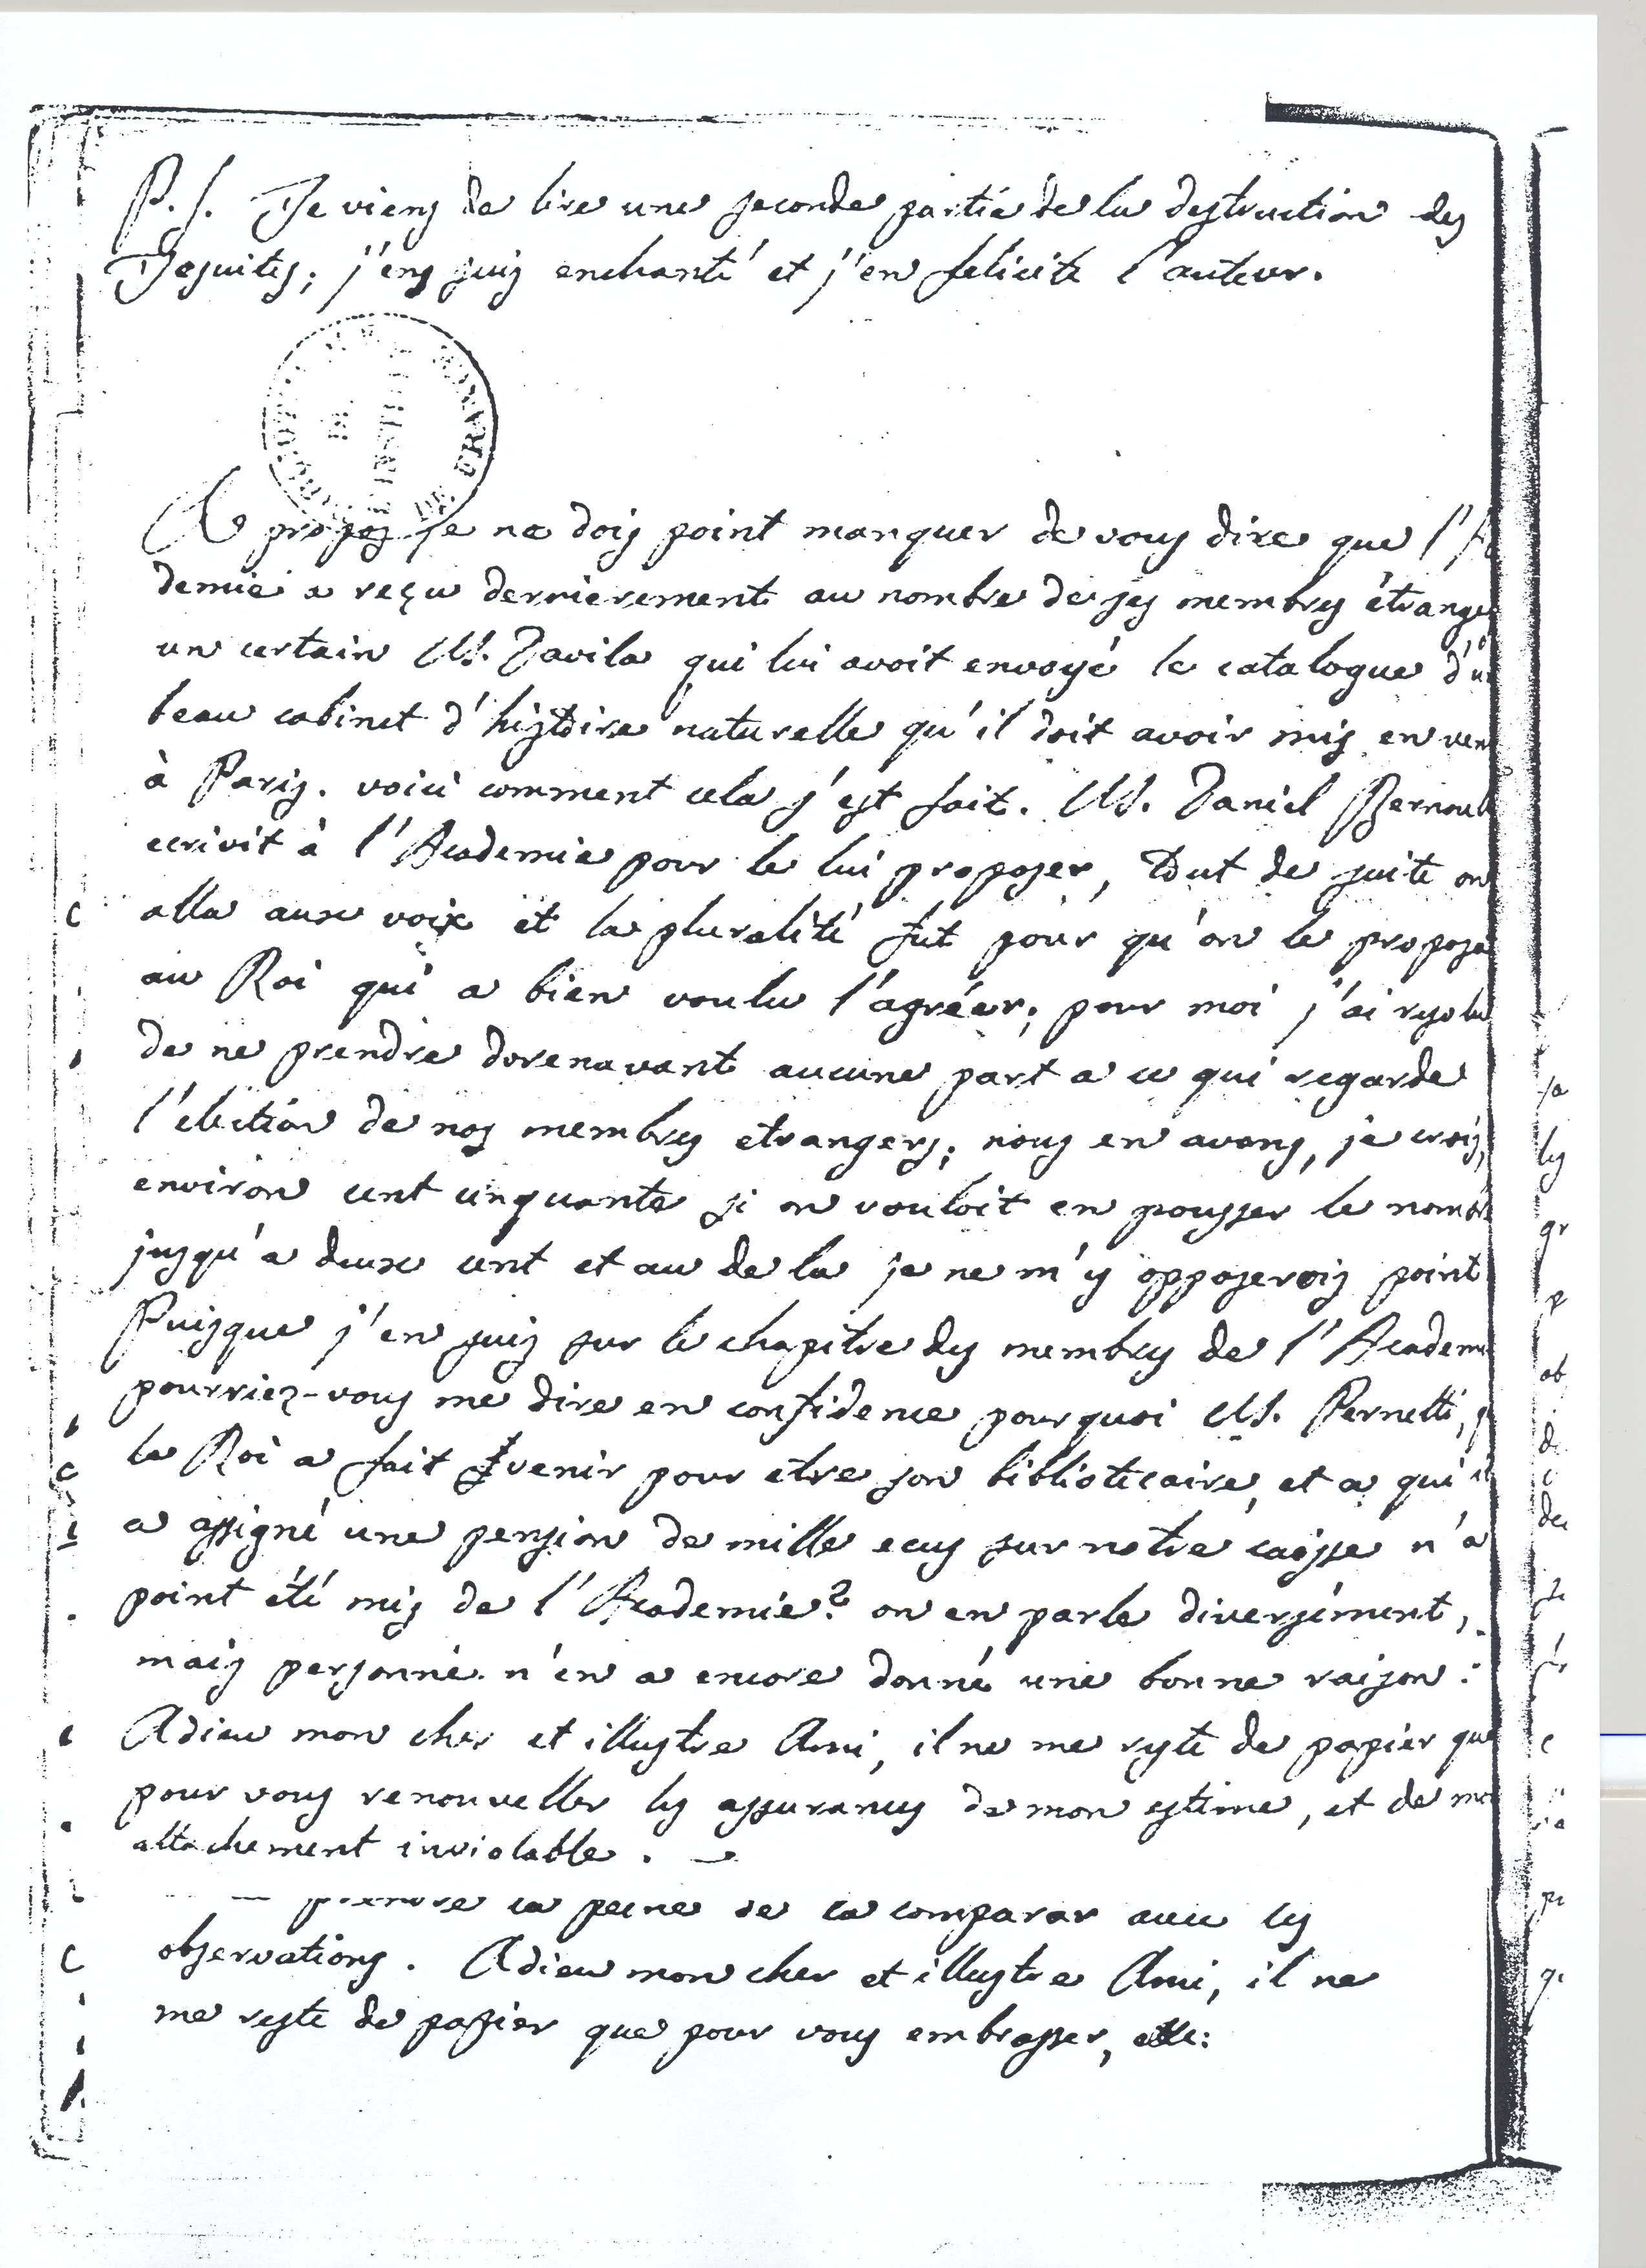 P.S. Je viens de lire une seconde partie de la destruction des
Jesuites; j'en suis enchanté et j'en felicite l'auteur.
DE
L'INSTITUT
DE FRANCE
A propos je ne dois point manquer de vous dire que l'A
demie a reçu dernierement au nombre de ses membres étrange
un certain M. Davila qui lui avoit envoyé le catalogue d'u
beau cabinet d'histoire naturelle qu'il doit avoir mis en ven
à Paris. voici comment cela s'est fait. M. Daniel Bernoul
ecrivit à l'Academie pour le lui proposer, tout de suite on
alla aux voix et la pluralité fut pour qu'on le propose
au Roi qui a bien voulu l'agréer; pour moi j'ai resolu
de ne prendre dorenavant aucune part a ce qui regarde
l'election de nos membres etrangers; nous en avons, je crois,
environ cent cinquante si on vouloit en pousser le nomb
jusqu'a deux cent et au de la je ne m'y opposerois point
Puisque j'en suis sur le chapitre des membres de l'Academi
pourriez-vous me dire en confidence pourquoi M. Pernetti, q
le Roi a fait venir pour etre son bibliotecaire, et a qui il
a assigné une pension de mille ecus sur notre caisse n'a
point été mis de l'Academie? on en parle diversement,
mais personne n'en a encore donné une bonne raison.
Adieu mon cher et illustre Ami, il ne me reste de papier que
pour vous renouveller les assurances de mon estime, et de mo
attachement inviolable.
prendre la peine de la comparer avec les
observations. Adieu mon cher et illustre Ami, il ne
me reste de papier que pour vous embrasser,